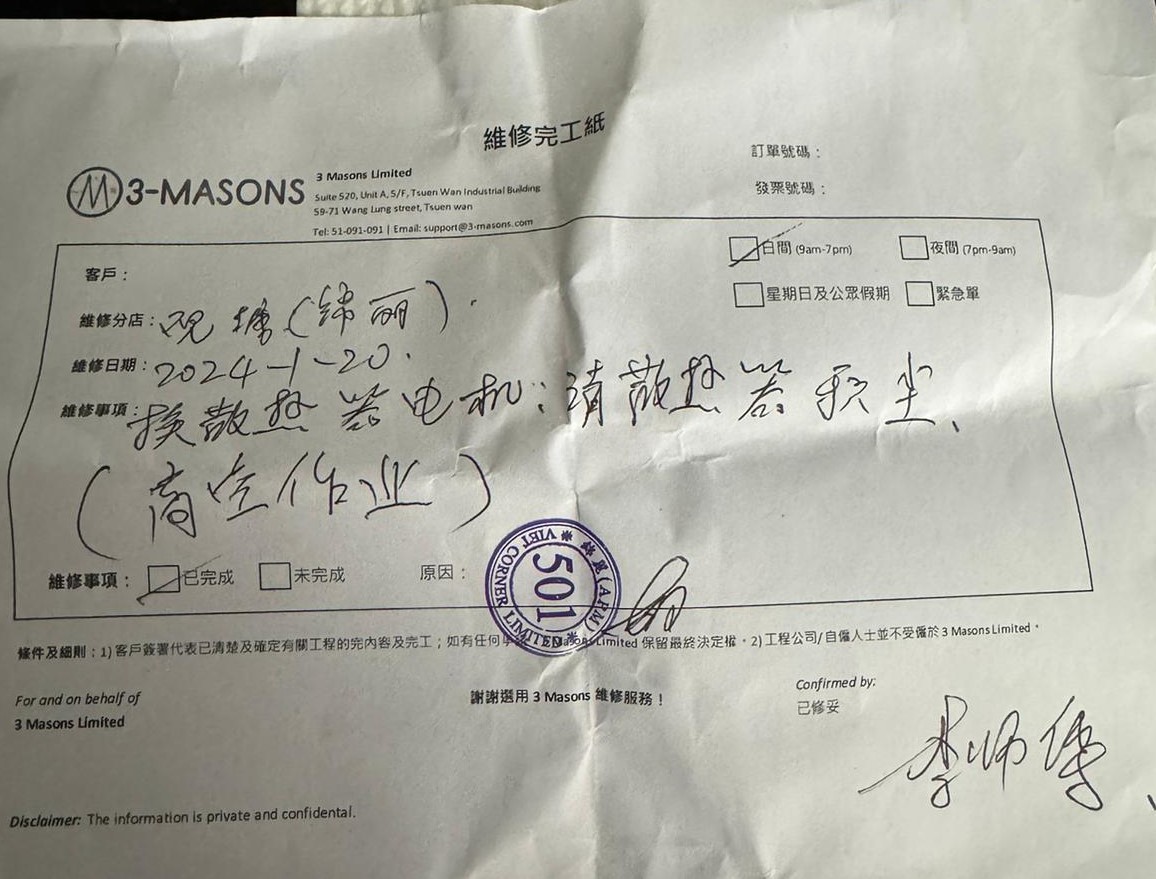 維修完工紙
訂單號碼：
發票號碼：
3-MASONS
3 Masons Limited
Suite 520, Unit A, 5/F, Tsuen Wan Industrial Building
59-71 Wang Lung street, Tsuen wan
Tel: 51-091-091 | Email: support@3-masons.com
白間 (9am-7pm)
夜間 (7pm-9am)
星期日及公眾假期
緊急單
客戶：
維修分店：观塘(錦丽).
維修日期：2024-1-20.
維修事項：换散热器电机；清散热器积尘、
(高空作业)
維修事項：
已完成
未完成
原因：
VIET CORNER LIMITED
(APM)
501
條件及細則：1) 客戶簽署代表已清楚及確定有關工程的完內容及完工；如有任何 Masons Limited 保留最終決定權。2) 工程公司/自僱人士並不受僱於 3 Masons Limited。
For and on behalf of
3 Masons Limited
謝謝選用 3 Masons 維修服務！
Confirmed by:
已修妥
李师傅
Disclaimer: The information is private and confidential.